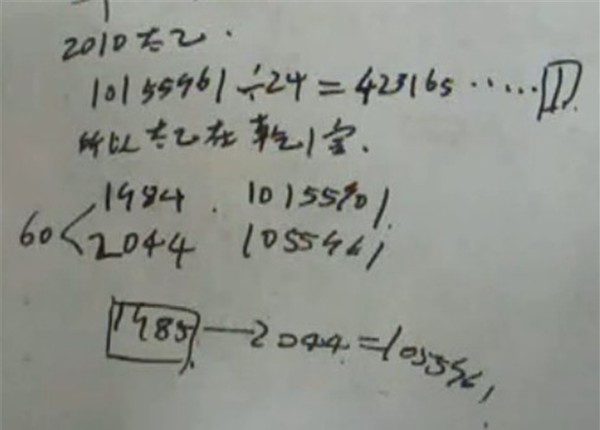 2010太乙.
10155961÷24=423165……1
所以太乙在乾1宫.
1984. 10155901
60<2044 1055961
1985—2044=1055961